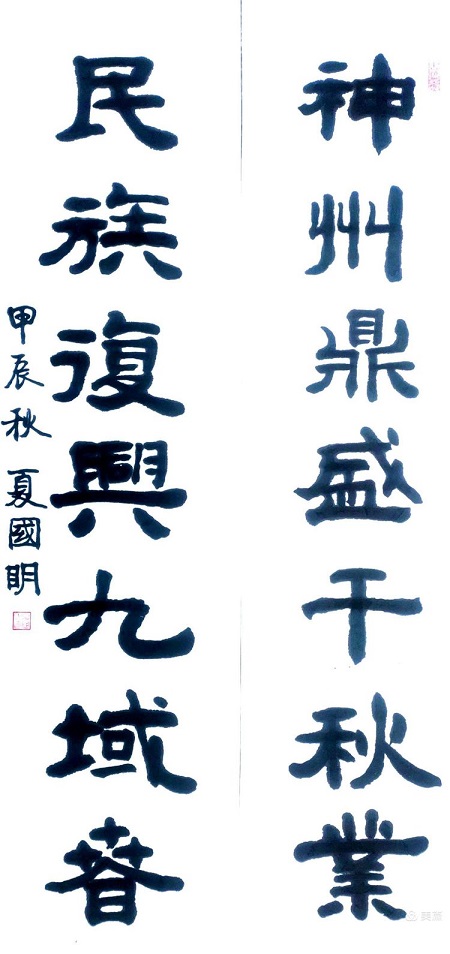 神州鼎盛千秋業
民族復興九域春
甲辰秋 夏國明
美篇